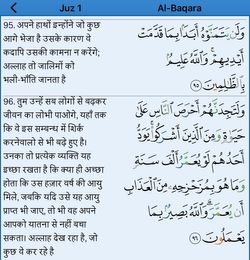 Juz 1
Al-Baqara
95. अपने हाथों इन्होंने जो कुछ
आगे भेजा है उसके कारण वे
कदापि उसकी कामना न करेंगे;
अल्लाह तो जालिमों को
भली-भाँति जानता है
وَلَن يَتَمَنَّوْهُ أَبَدًۢا بِمَا قَدَّمَتْ
أَيْدِيهِمْ ۗ وَٱللَّهُ عَلِيمٌۢ
بِٱلظَّٰلِمِينَ ٩٥
96. तुम उन्हें सब लोगों से बढ़कर
जीवन का लोभी पाओगे, यहाँ तक
कि वे इस सम्बन्ध में शिर्क
करनेवालो से भी बढ़े हुए है।
उनका तो प्रत्येक व्यक्ति यह
इच्छा रखता है कि क्या ही अच्छा
होता कि उस हज़ार वर्ष की आयु
मिले, जबकि यदि उसे यह आयु
प्राप्त भी जाए, तो भी वह अपने
आपको यातना से नहीं बचा
सकता। अल्लाह देख रहा है, जो
कुछ वे कर रहे है
وَلَتَجِدَنَّهُمْ أَحْرَصَ ٱلنَّاسِ عَلَىٰ
حَيَوٰةٍ وَمِنَ ٱلَّذِينَ أَشْرَكُوا۟ ۚ يَوَدُّ
أَحَدُهُمْ لَوْ يُعَمَّرُ أَلْفَ سَنَةٍ
وَمَا هُوَ بِمُزَحْزِحِهِۦ مِنَ ٱلْعَذَابِ
أَن يُعَمَّرَ ۗ وَٱللَّهُ بَصِيرٌۢ بِمَا
يَعْمَلُونَ ٩٦